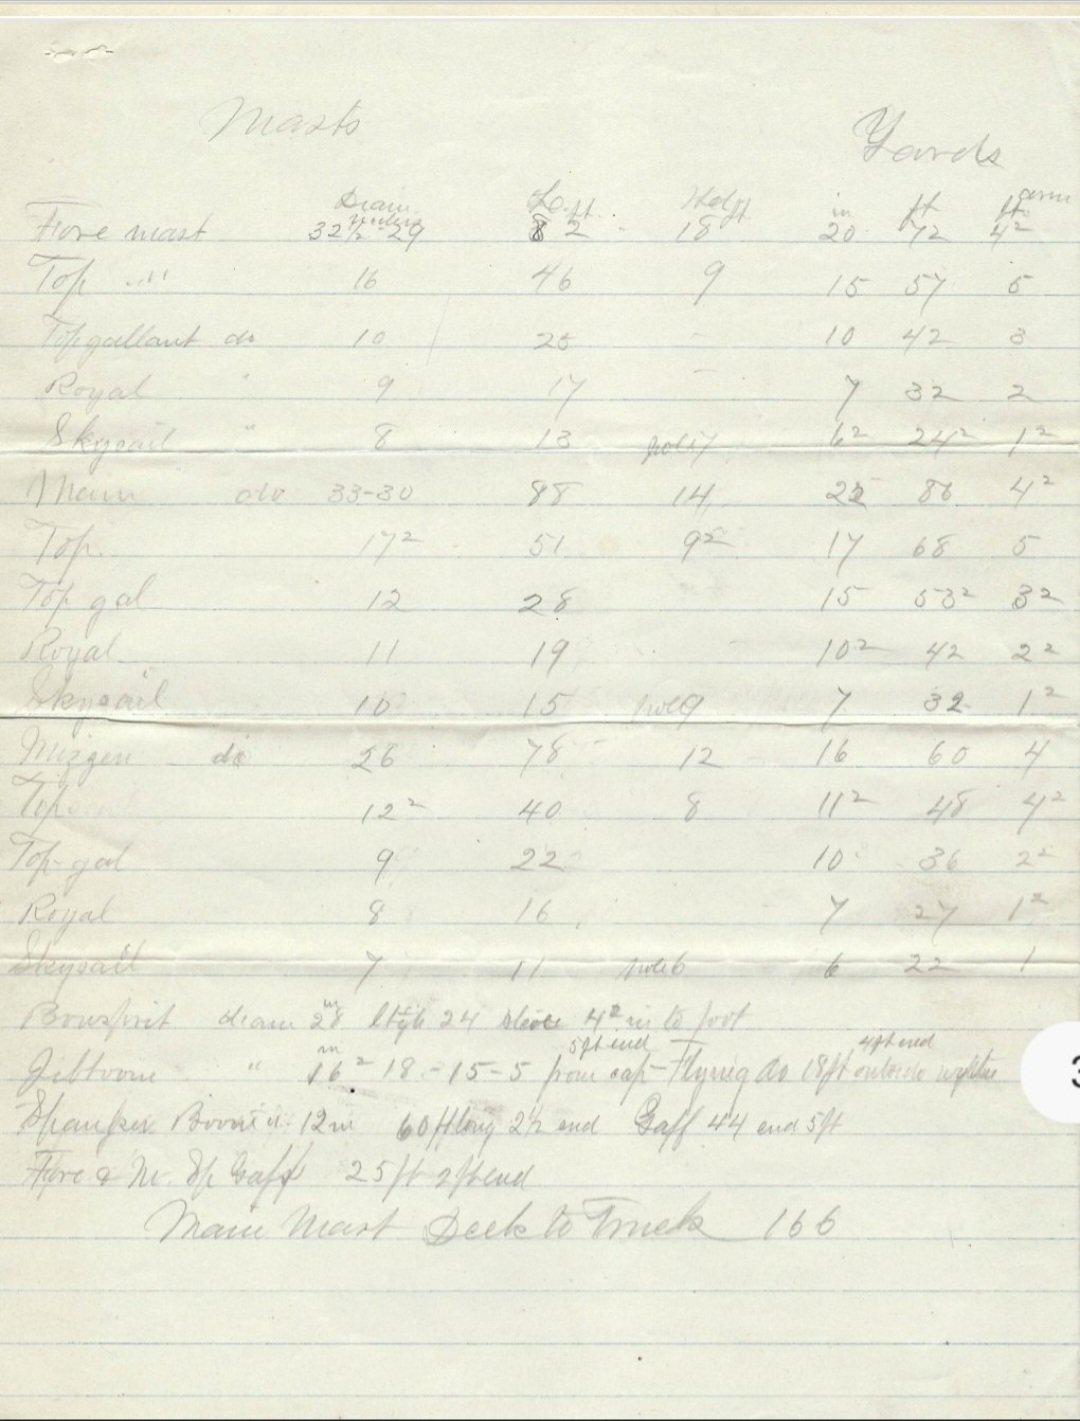 Masts Yards
Diam Lg. ft. Hd ft in ft arm ft
Fore mast 32½ - 29 82 18 20 72 4²
Top " 16 46 9 15 57 5
Topgallant do 10 25 - 10 42 3
Royal " 9 17 - 7 32 2
Skysail " 8 13 pole 7 6² 24² 1²
Main do 33-30 88 14 22 86 4²
Top. 17² 51 9² 17 68 5
Top gal 12 28 15 53² 3²
Royal 11 19 10² 42 2²
Skysail 10 15 pole 9 7 32 1²
Mizzen do 26 78 12 16 60 4
Top 12² 40 8 11² 48 4²
Top gal 9 22 10 36 2²
Royal 8 16 7 27 1²
Skysail 7 11 pole 6 6 22 1
Bowsprit diam 28 in 24 4² in to foot
5 ft end 4 ft end
Jibboom " 16² in 18 - 15 - 5 from cap - Flying do 18 ft outside
Spanker Boom 12 in 60 ft long 2½ end Gaff 44 end 5 ft
Fore & M. Sp Gaff 25 ft 2 ft end
Main Mast Deck to Truck 166
3